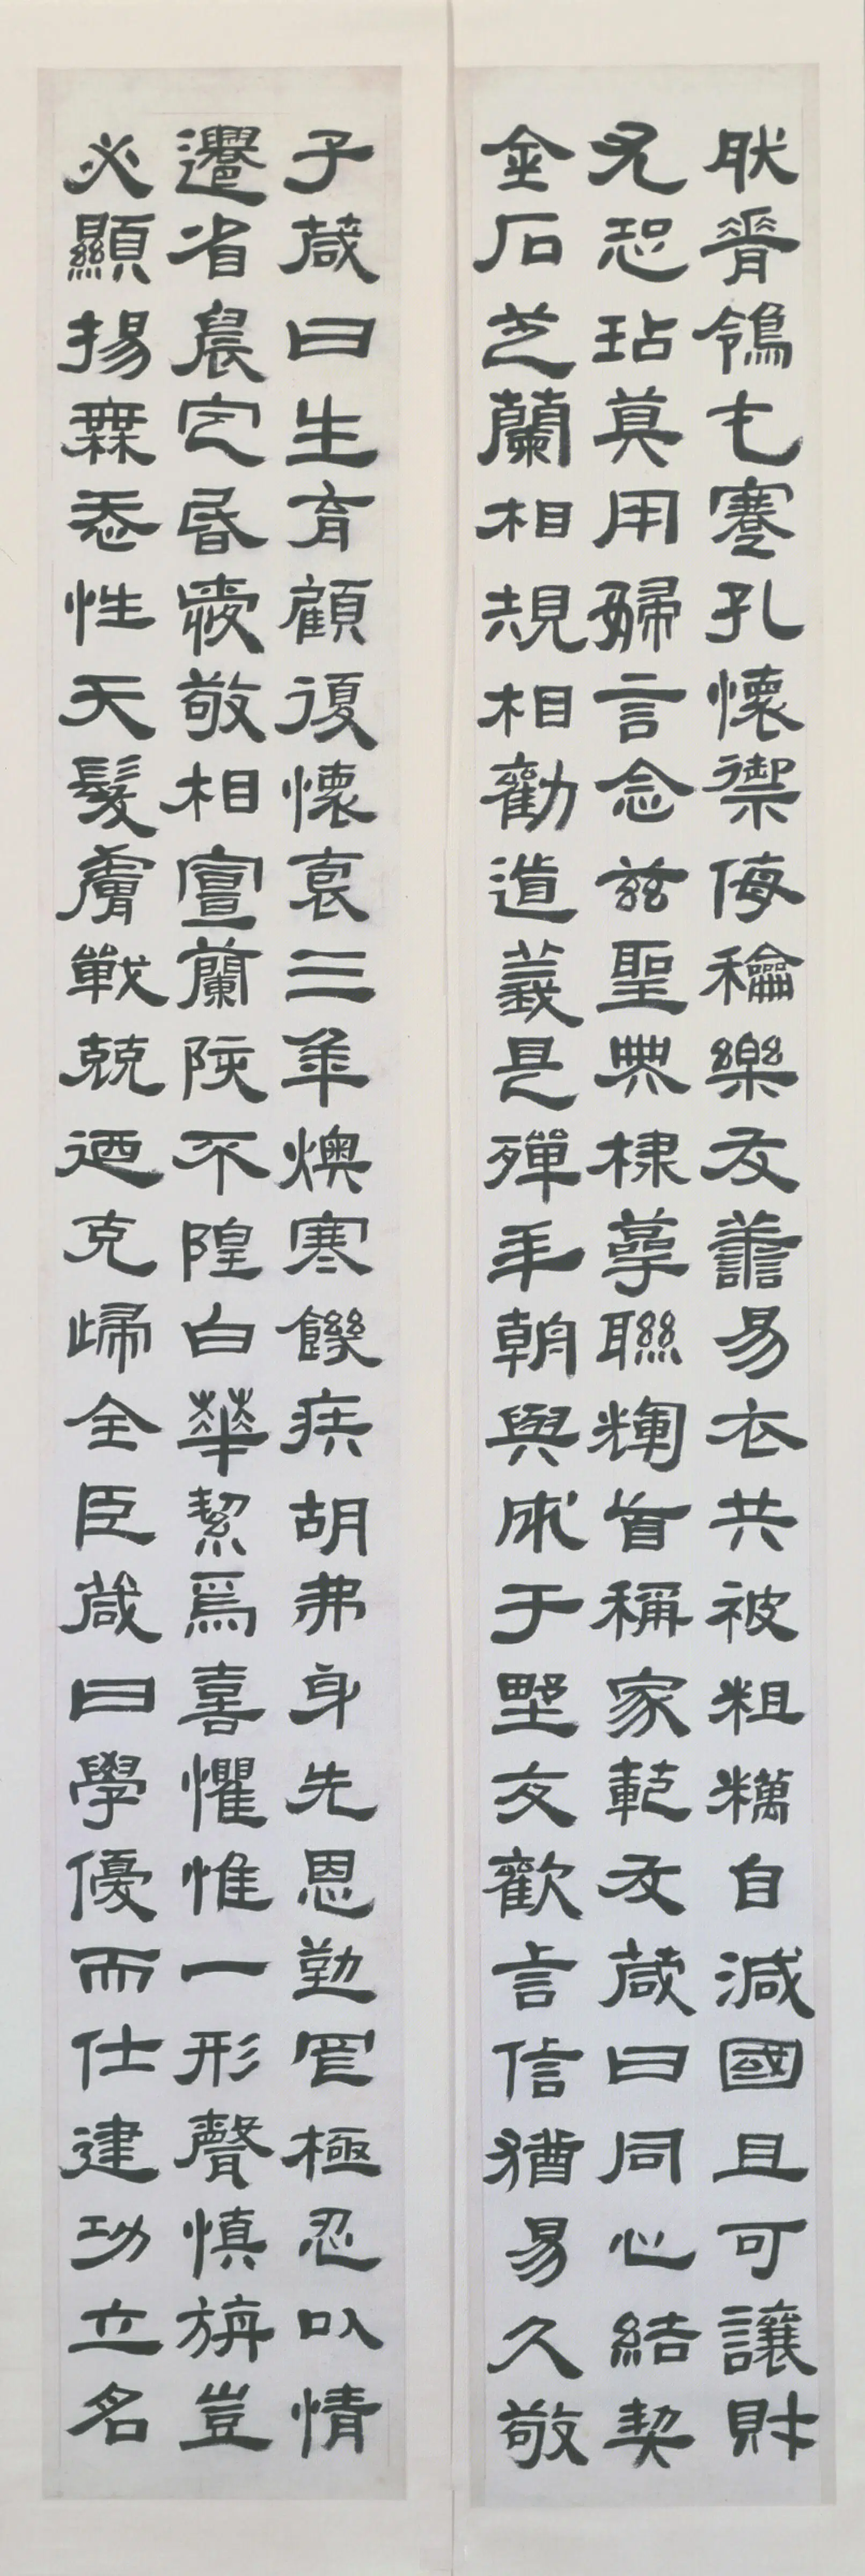 肰脊鴒屯蹇孔懷禦侮龢樂友譱易衣共被粗糲自減國且可讓財
尤恐玷莫用婦言念兹聖典棣萼聯輝首稱家範友箴曰同心結契
金石芝蘭相規相勸道義是殫手朝與成于野交歡言信猶易久敬
子箴曰生育顧復懷裏三年燠寒饑疾胡弗身先恩勤罔極忍以情
遷省晨定昏愛敬相宣蘭陔不隍白華絜爲喜懼惟一形聲慎旃豈
必顯揚無忝性天髮膚戰兢迺克歸全臣箴曰學優而仕建功立名